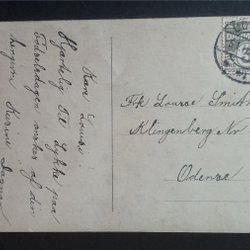 Kære Louise
Hjærtelig til Lykke paa
Fødselsdagen ønskes af din
hengivne Kirstine
Frk Louise Smith
Klingenberg Nr
Odense